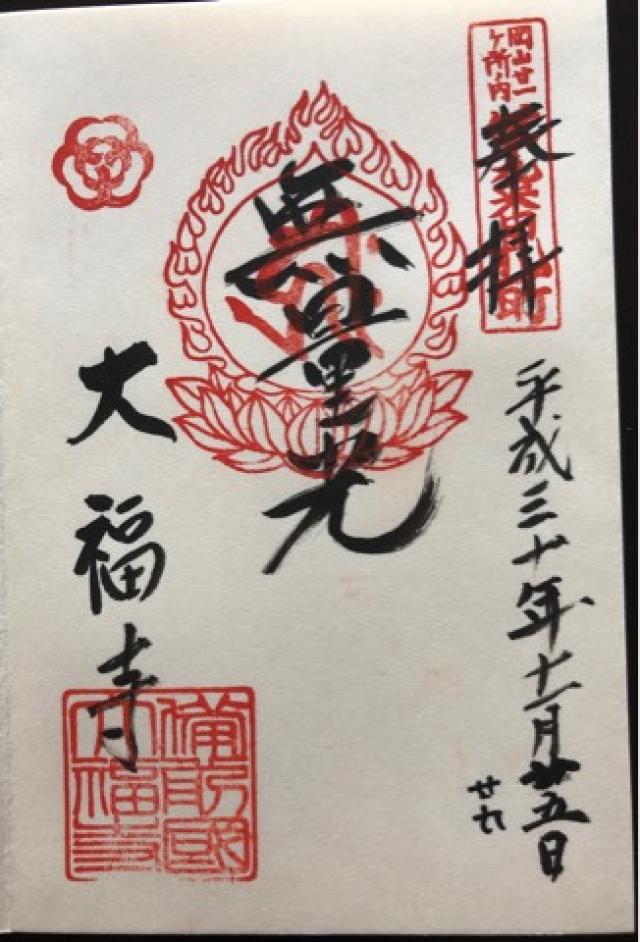 岡山廿一
ヶ所内
奉拝
平成三十年十一月廿五日
廿九
無量光
大福寺
備前國
大福寺